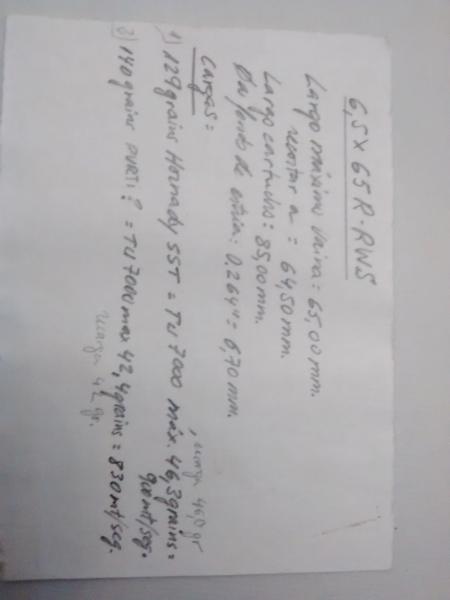 6,5 x 65 R. RWS
Largo máximo vaina = 65,00 mm.
recortar a = 64,50 mm.
Largo cartucho = 85,00 mm.
de estria: 0.264" = 6,70 mm.
Cargas =
recarga 46,0 gr
1) 129 grains Hornady SST = TU 7000 máx. 46,3 grains =
900 mt/seg.
2) 140 grains = TU 7000 max 42,4 grains = 830 mt/seg.
recarga 42 gr.